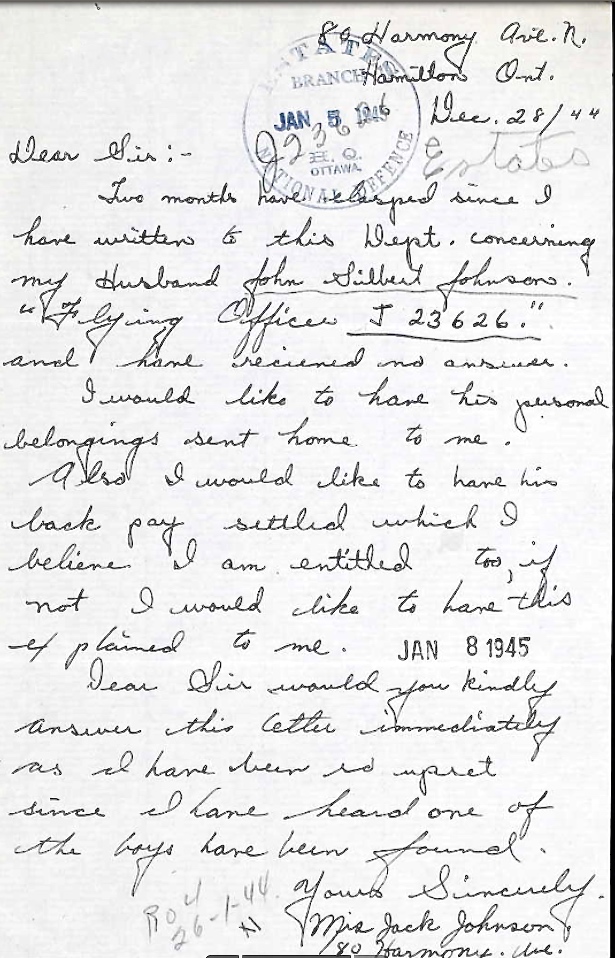 80 Harmony Ave. N.
Hamilton Ont.
Dec. 28/44
ESTATES
BRANCH
JAN 5 1945
J23626
H. Q.
OTTAWA
NATIONAL DEFENCE
Estates
Dear Sir:-
Two months have elapsed since I
have written to this Dept. concerning
my Husband John Gilbert Johnson.
"Flying Officer J 23626."
and have recieved no answer.
I would like to have his personal
belongings sent home to me.
Also I would like to have his
back pay settled which I
believe I am entitled too, if
not I would like to have this
explained to me.
JAN 8 1945
Dear Sir would you kindly
answer this letter immediately
as I have been so upset
since I have heard one of
the boys have been found.
Yours Sincerely.
Mrs Jack Johnson.
80 Harmony. Ave.
26-1-44